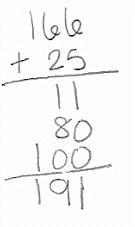 166
+ 25
11
80
100
191